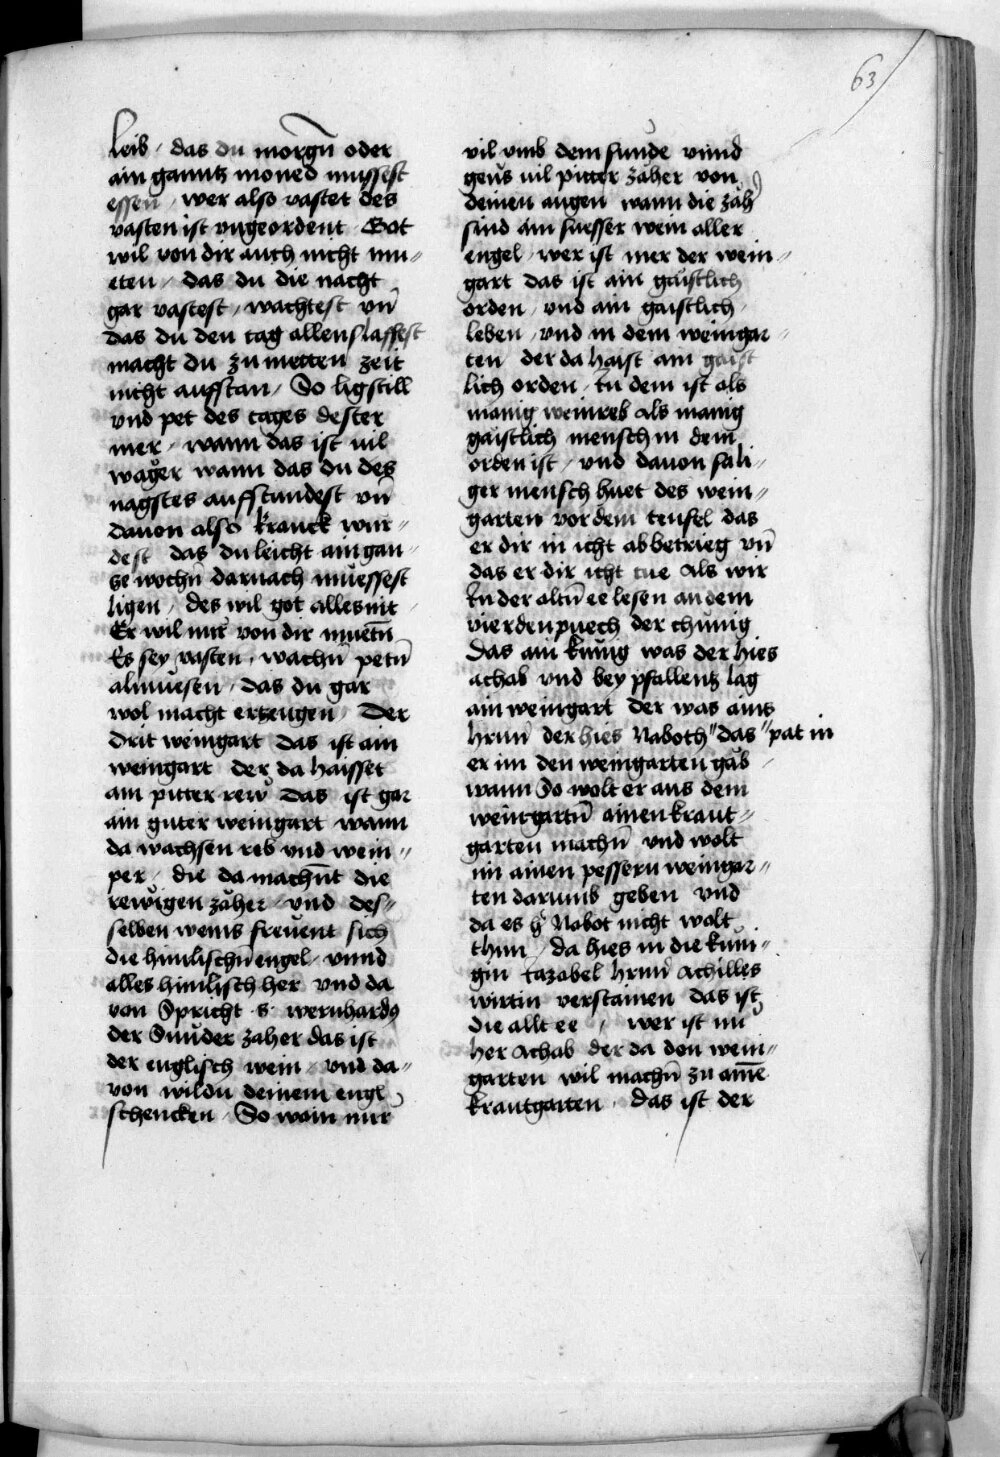 63
leib / das du morgn̄ oder
ain ganntz moned mussest
essen / wer also vastet des
vasten ist vngeordent Got
wil von dir auch nicht mu〃
eten / das du die nacht
gar vastest / wachtest vn̄
das du den tag allen slaffest
macht du zu metten zeit
nicht aufstan / So lig still
vnd pet des tages dester
mer / wann das ist vil
wäger wann das du des
nagstes auffstundest vn̄
dauon also kranck wur〃
dest das du leicht ain gan〃
tze wochn̄ darnach müessest
ligen / des wil got alles nit
Er wil nür von dir muetn̄
Es sey vasten / wachn̄ petn̄
almüesen / das du gar
wol macht ertzeugen / Der
drit weingart das ist am
weingart der da haisset
ain pitter rew̄ das ist gar
ain guter weingart wann
da wachsen reb vnd wein〃
per / die da machn̄t die
rewigen zäher vnd des〃
selben weins freuent sich
die himlischn̄ engel / vnnd
alles himlisch her vnd da
von Spricht ·s· wernhardꝰ
der Sunder zaher das ist
der englisch wein / vnd da〃
von wildu deinem engl
schencken / So wain nür
vil vmb dem sunde vnnd
geus vil pitter zäher von
deinen augen wann die zäh
sind ain suesser wein aller
engel / wer ist mer der wein〃
gart das ist ain gaistlich
orden / vnd ain gaistlich
leben / vnd in dem weingar〃
ten der da haist ain gaist
lich orden / In dem ist als
manig weinreb als manig
gaistlich mensch in dem
orden ist / vnd dauon säli〃
ger mensch huet des wein〃
garten vor dem teufel das
er dir in icht abbetrieg vn̄
das er dir icht tue Als wir
In der altn̄ ee lesen an dem
vierden puech der chunig
Das ain kunig was der hies
achab vnd bey pfallentz lag
ain weingart der was ains
hrnn̄ der hies Naboth〃das〃pat in
er im den weingarten gäb
wann So wolt er aus dem
weingartn̄ ainen kraut〃
garten machn̄ vnd wolt
im ainen pessern weingar〃
ten darumb geben vnd
da es h Nabot nicht wolt
thun / da hies in die küni〃
gin Iazabel hrnn̄ Achilles
wirtin verstainen das ist
die allt ee / wer ist nu
her Achab der da den wein〃
garten wil machn̄ zu aine
krautgarten / das ist der